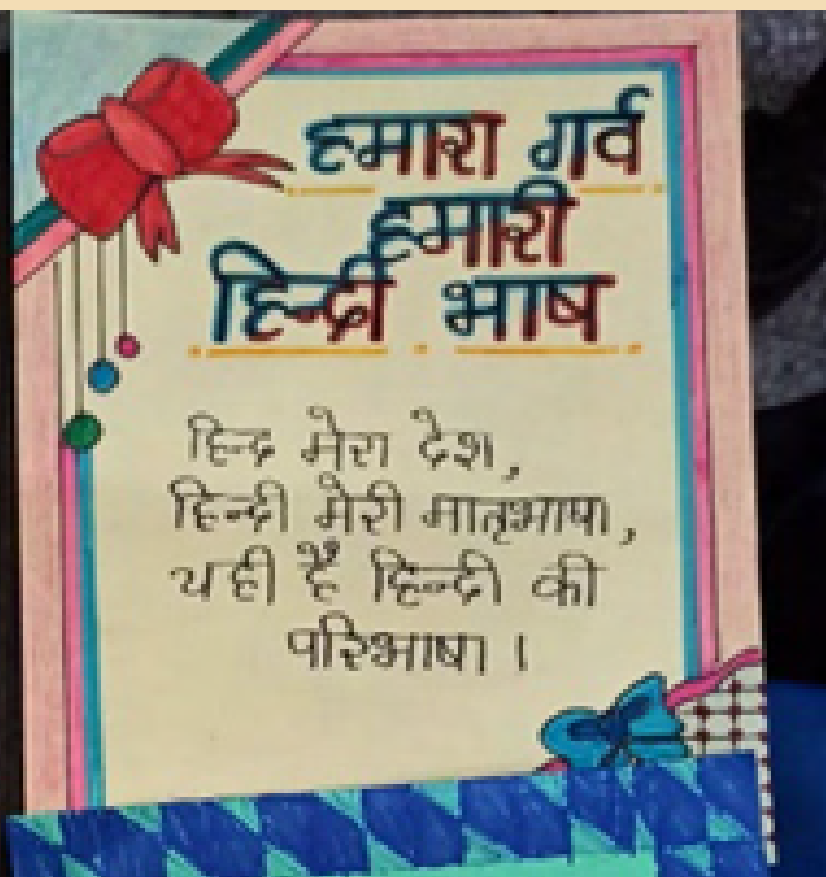 हमारा गर्व
हमारी
हिन्दी भाष
हिन्द मेरा देश,
हिन्दी मेरी मातृभाषा,
यही हैं हिन्दी की
परिभाषा ।